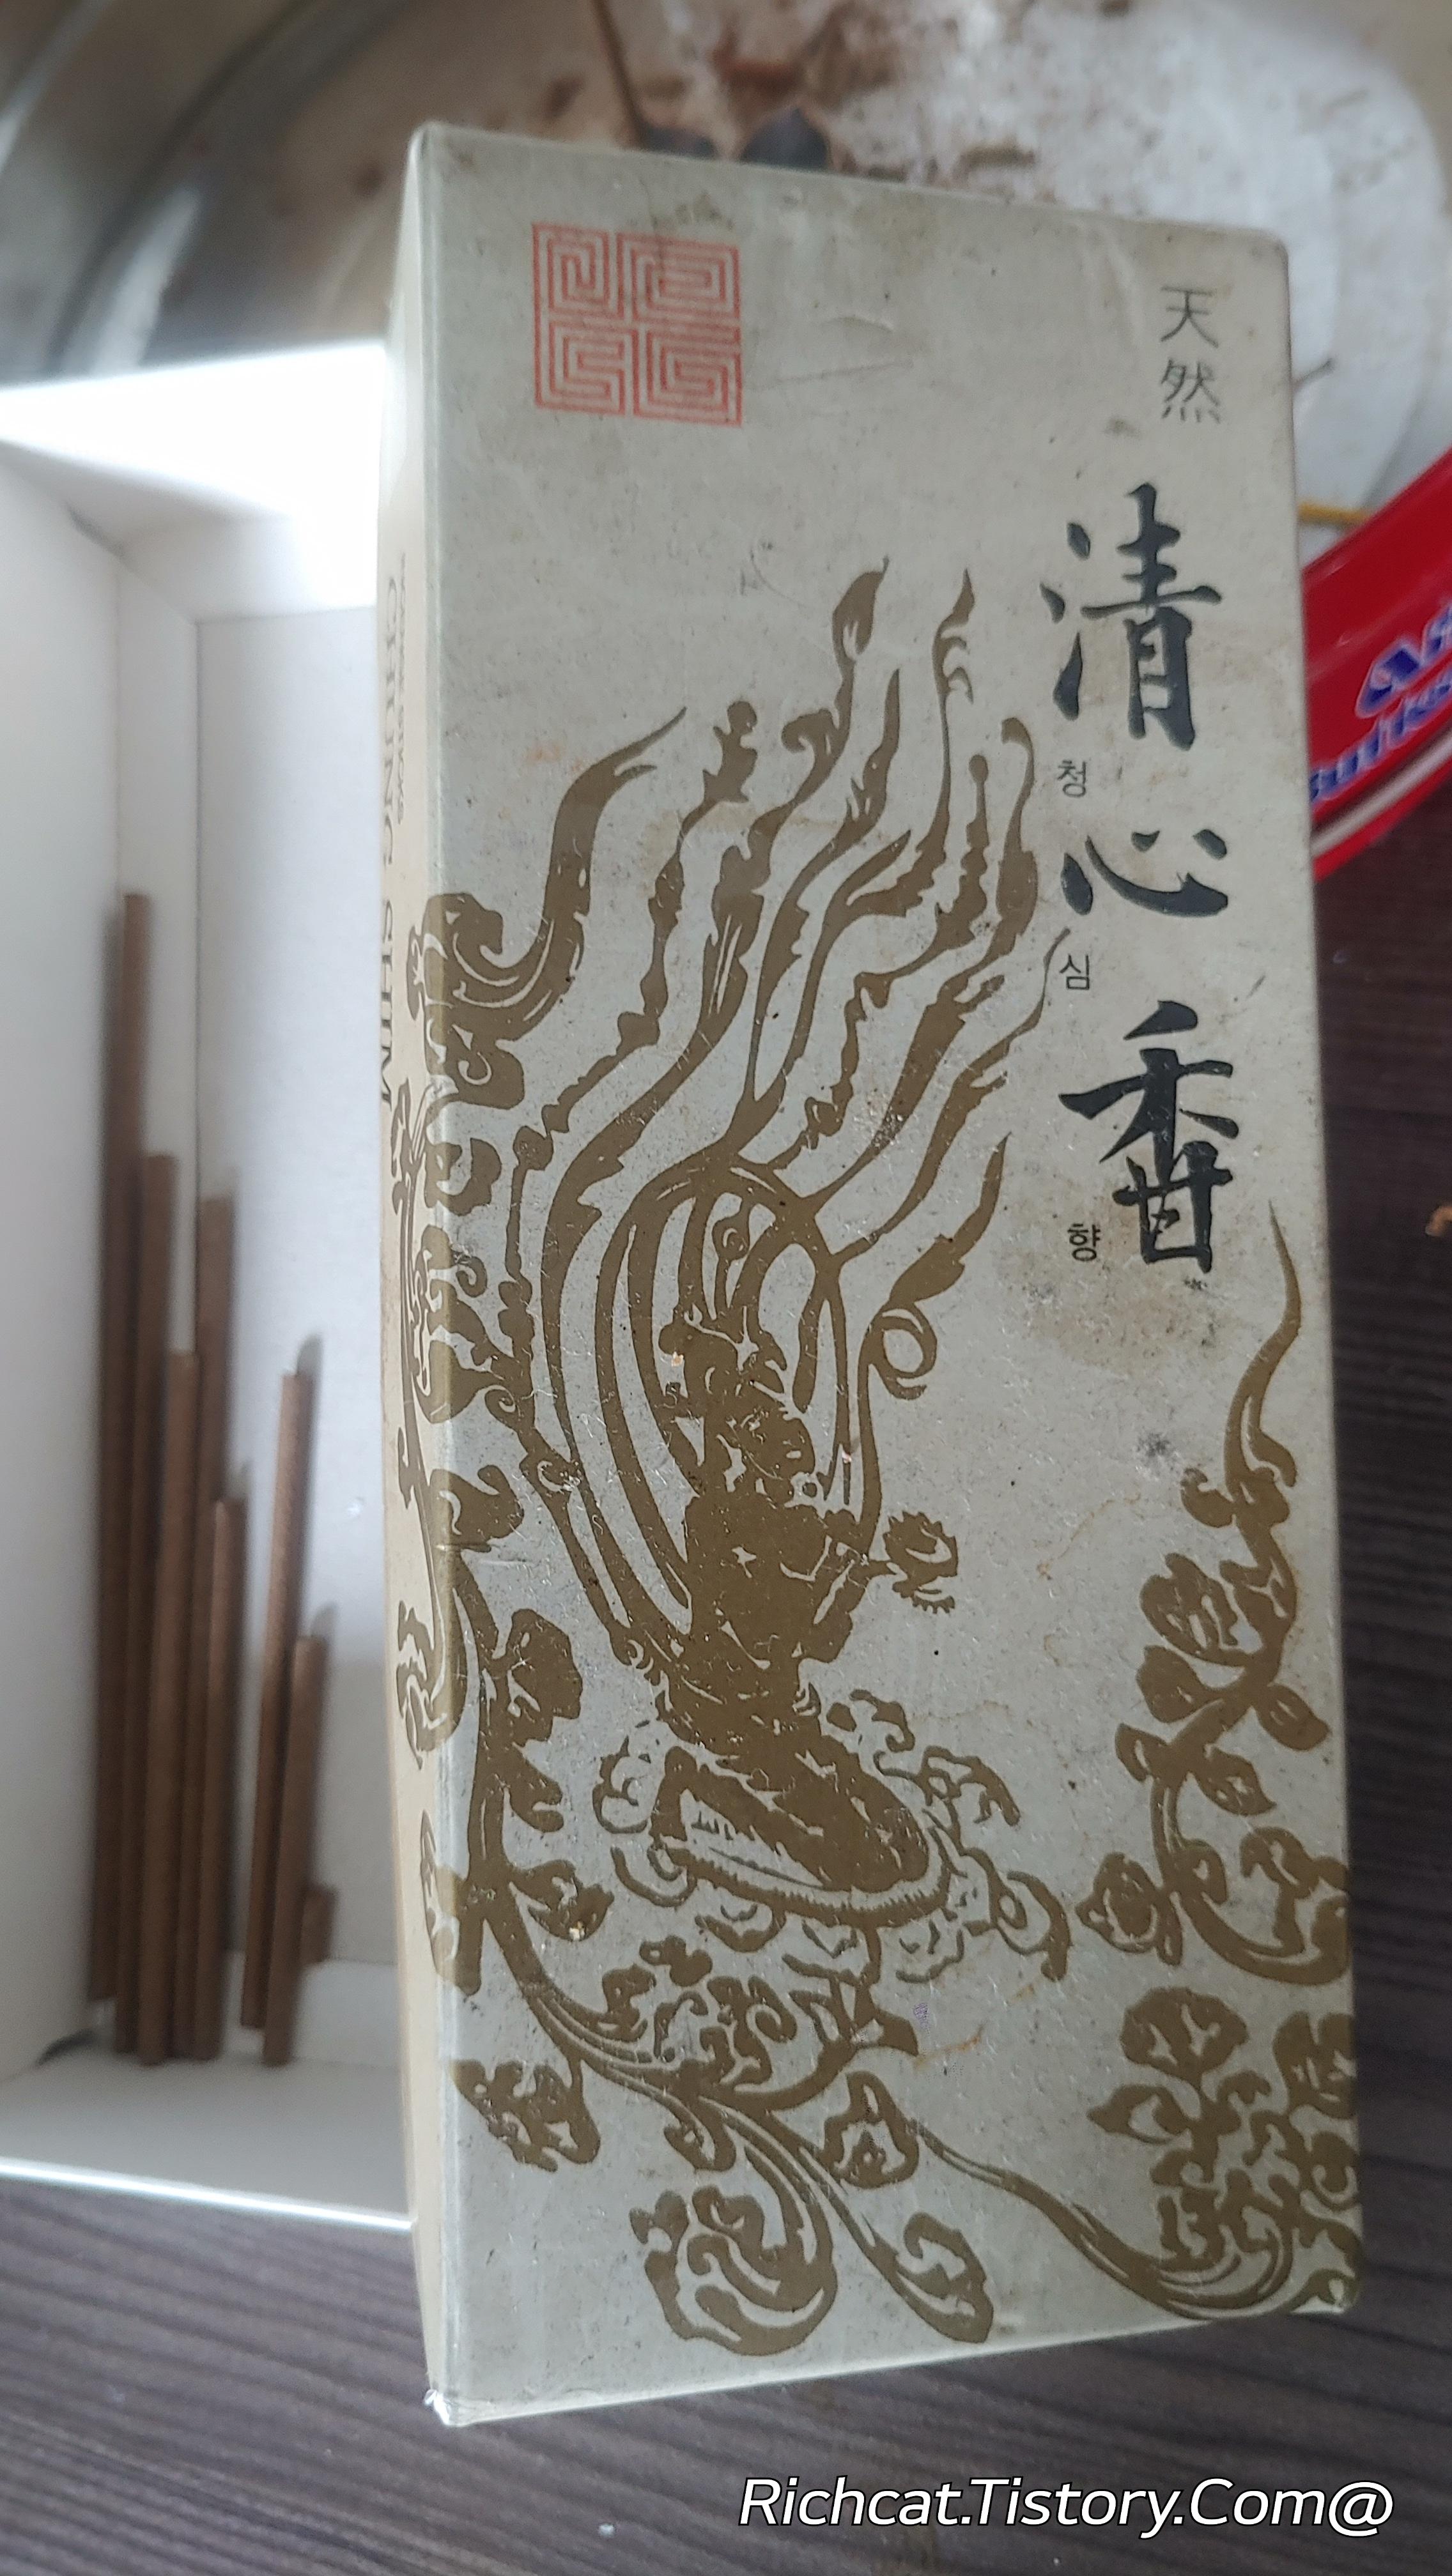 天然
清心香
청
심
향
CHUNG SHIM
Richcat.Tistory.Com@